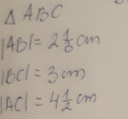 △ ABC
|AB| = 2 1/3 cm
|BC| = 3 cm
|AC| = 4 1/2 cm